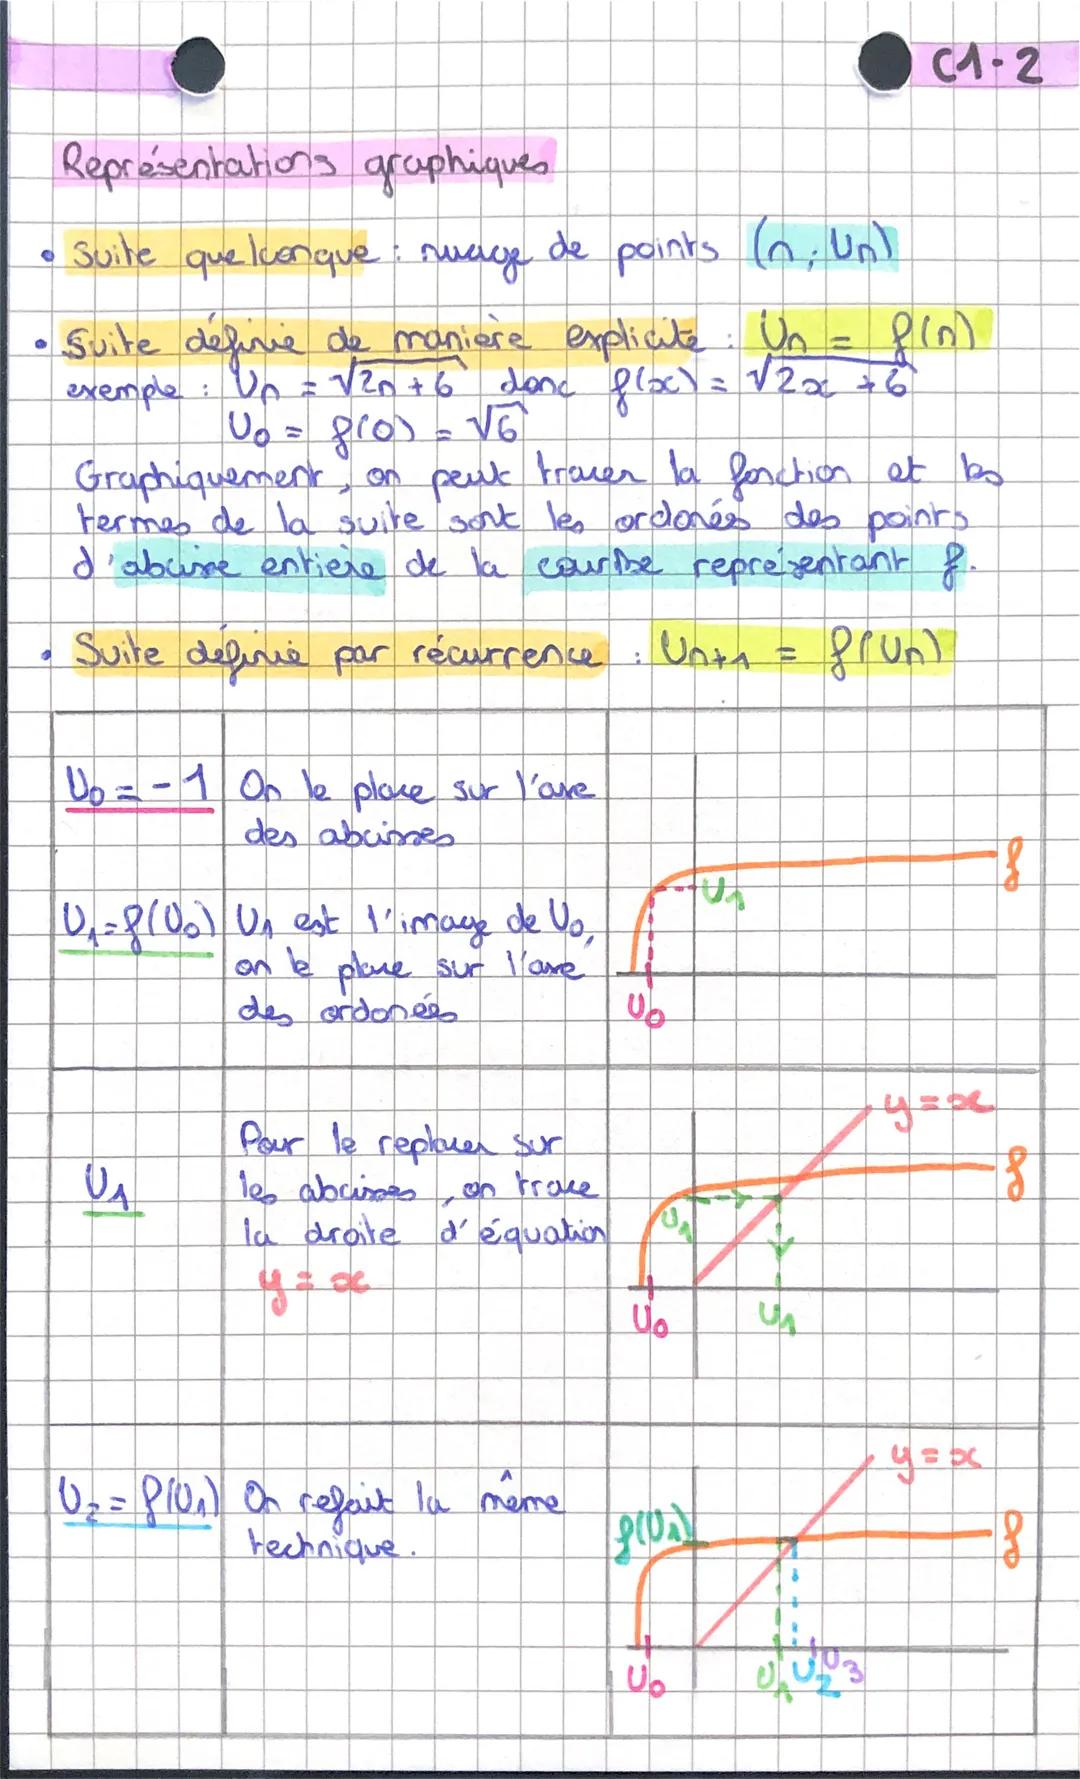 C1-2
Représentations graphiques
• Suite quelconque : nuage de points (n ; Un)
• Suite définie de manière explicite : Un = f(n)
exemple : Un = √2n + 6 donc f(x) = √2x + 6
U0 = f(0) = √6
Graphiquement, on peut tracer la fonction et les
termes de la suite sont les ordonées des points
d'abcisse entière de la courbe représentant f.
• Suite définie par récurrence : Un+1 = f(Un)
U0 = -1
On le place sur l'axe
des abcisses
U1 = f(U0)
U1 est l'image de U0,
on le place sur l'axe
des ordonées
f
U1
U0
U1
Pour le replacer sur
les abcisses, on trace
la droite d'équation
y = x
y = x
f
U1
U0
U1
U2 = f(U1)
On refait la même
technique.
y = x
f(U1)
f
U0
U1
U2
U3